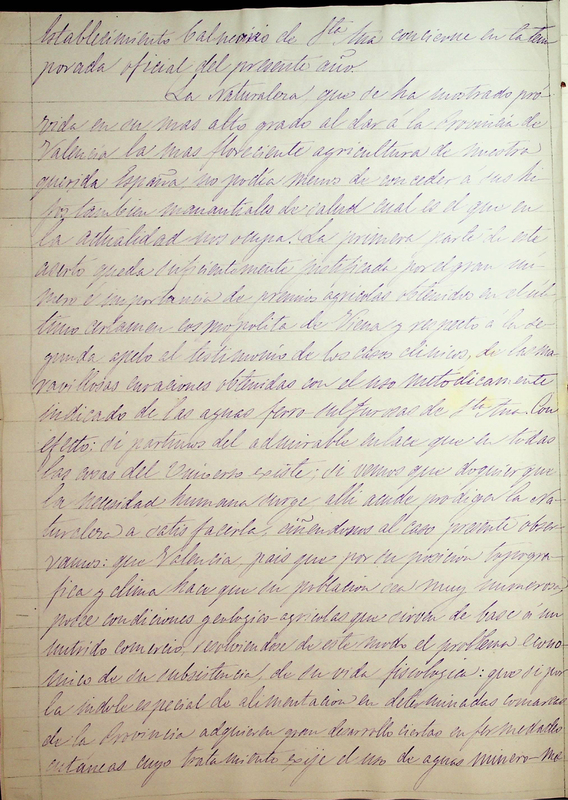 Establecimiento Balneario de Sta Ana concierne en la tem
porada oficial del presente año.
La Naturaleza, que se ha mostrado pró-
vida en su mas alto grado al dar a la Provincia de
Valencia la mas floreciente agricultura de nuestra
querida España no podia menos de conceder a sus hi
jos tambien manantiales de salud cual es el que en
la actualidad nos ocupa. La primera parte de este
aserto queda suficientemente justificada por el gran nú-
mero é importancia de premios agricolas obtenidos en el úl-
timo certamen cosmopolita de Viena y respecto a la se-
gunda apelo al testimonio de los casos clínicos, de las ma
ravillosas curaciones obtenidas con el uso metódicamente
indicado de las aguas ferro-sulfurosas de Sta Ana. Con
efecto: si partimos del admirable enlace que en todas
las cosas del Universo existe; si vemos que do quier que
la necesidad humana surge alli acude prodiga la Na-
turaleza a satisfacerla, ciñendonos al caso presente obser
vamos: que Valencia, pais que por su posición topográ-
fica y clima hace que su poblacion sea muy numerosa,
posee condiciones geologico-agricolas que sirven de base á un
nutrido comercio, resolviendose de este modo el problema econo-
mico de su subsistencia, de su vida fisiologica: que si por
la indole especial de alimentacion en determinadas comarcas
de la Provincia adquieren gran desarrollo ciertas enfermedades
cutáneas cuyo tratamiento exije el uso de aguas minero-me